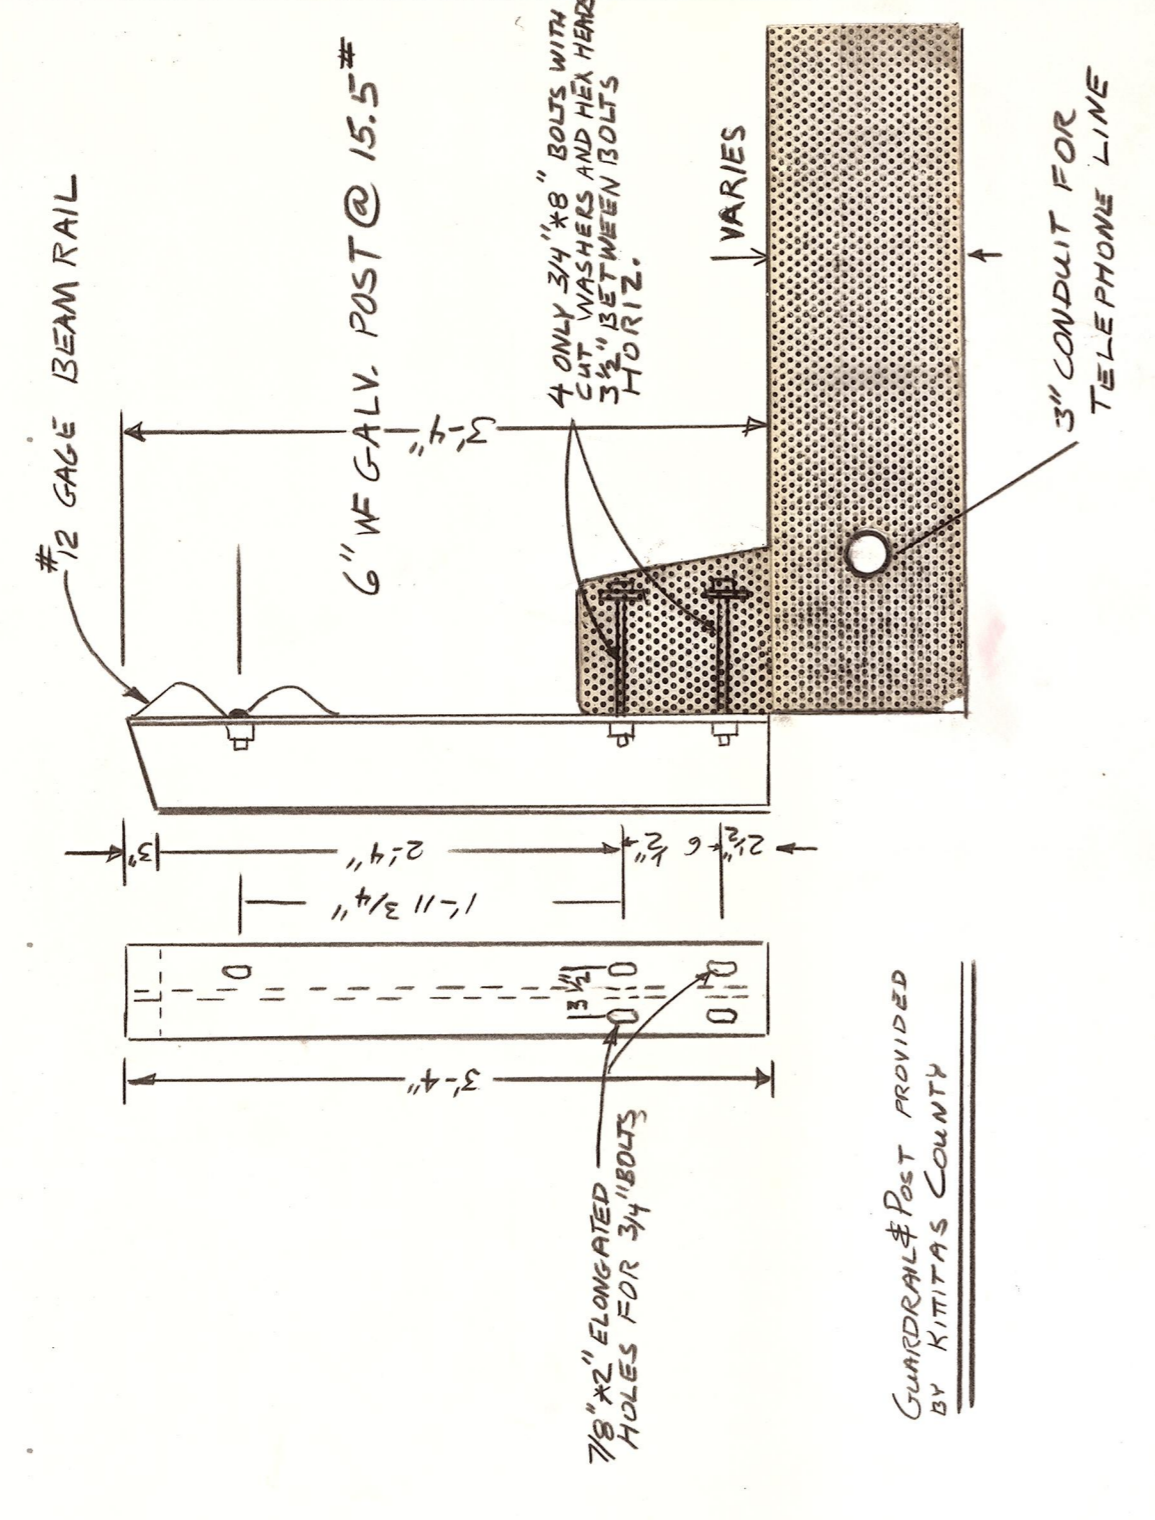 #12 GAGE BEAM RAIL
6" WF GALV. POST @ 15.5#
3'-4"
4 ONLY 3/4"*8" BOLTS WITH
CUT WASHERS AND HEX HEADS
3½" BETWEEN BOLTS
HORIZ.
VARIES
3" CONDUIT FOR
TELEPHONE LINE
3"
2'-4"
6 ½"
2½"
1'-11 3/4"
3½"
3'-4"
7/8"*2" ELONGATED
HOLES FOR 3/4" BOLTS
GUARDRAIL & POST PROVIDED
BY KITTITAS COUNTY